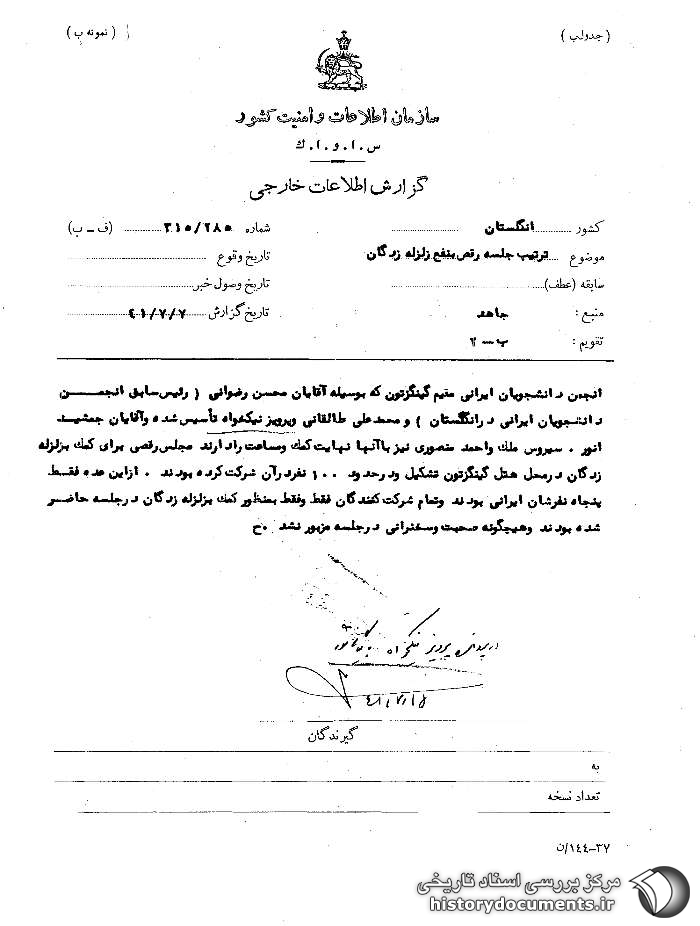 ( جدولب )
( نمونه ب )
سازمان اطلاعات و امنیت کشور
س . ا . و . ا . ك
گزارش اطلاعات خارجی
کشور انگلستان
شماره ۳۱۵/۲۸۵ (ف ــ ب)
موضوع ترتیب جلسه رقص بنفع زلزله زدگان
تاریخ وقوع
سابقه (عطف)
تاریخ وصول خبر
منبع : جاهد
تاریخ گزارش ۴۱/۷/۷
تقویم : ب ــ ۲
انجمن دانشجویان ایرانی مقیم کینگزتون که بوسیله آقایان محسن رضوانی ( رئیس سابق انجمن
دانشجویان ایرانی در انگلستان ) و محمد علی طالقانی و پرویز نیکخواه تأسیس شده و آقایان جمشید
انور ، سیروس ملك و احمد منصوری نیز با آنها نهایت کمك و مساعت را دارند مجلس رقصی برای کمك بزلزله
زدگان در محل هتل کینگزتون تشکیل و در حدود ۱۰۰ نفر در آن شرکت کرده بودند . از این عده فقط
پنجاه نفرشان ایرانی بودند و تمام شرکت کنندگان فقط و فقط بمنظور کمك بزلزله زدگان در جلسه حاضر
شده بودند و هیچگونه صحبت و سخنرانی در جلسه مزبور نشد . ح
در پرونده پرویز نیکخواه
۴۱/۷/۱۵
گیرندگان
به
تعداد نسخه
۳۷-۱۴۴/ن
مرکز بررسی اسناد تاریخی
historydocuments.ir